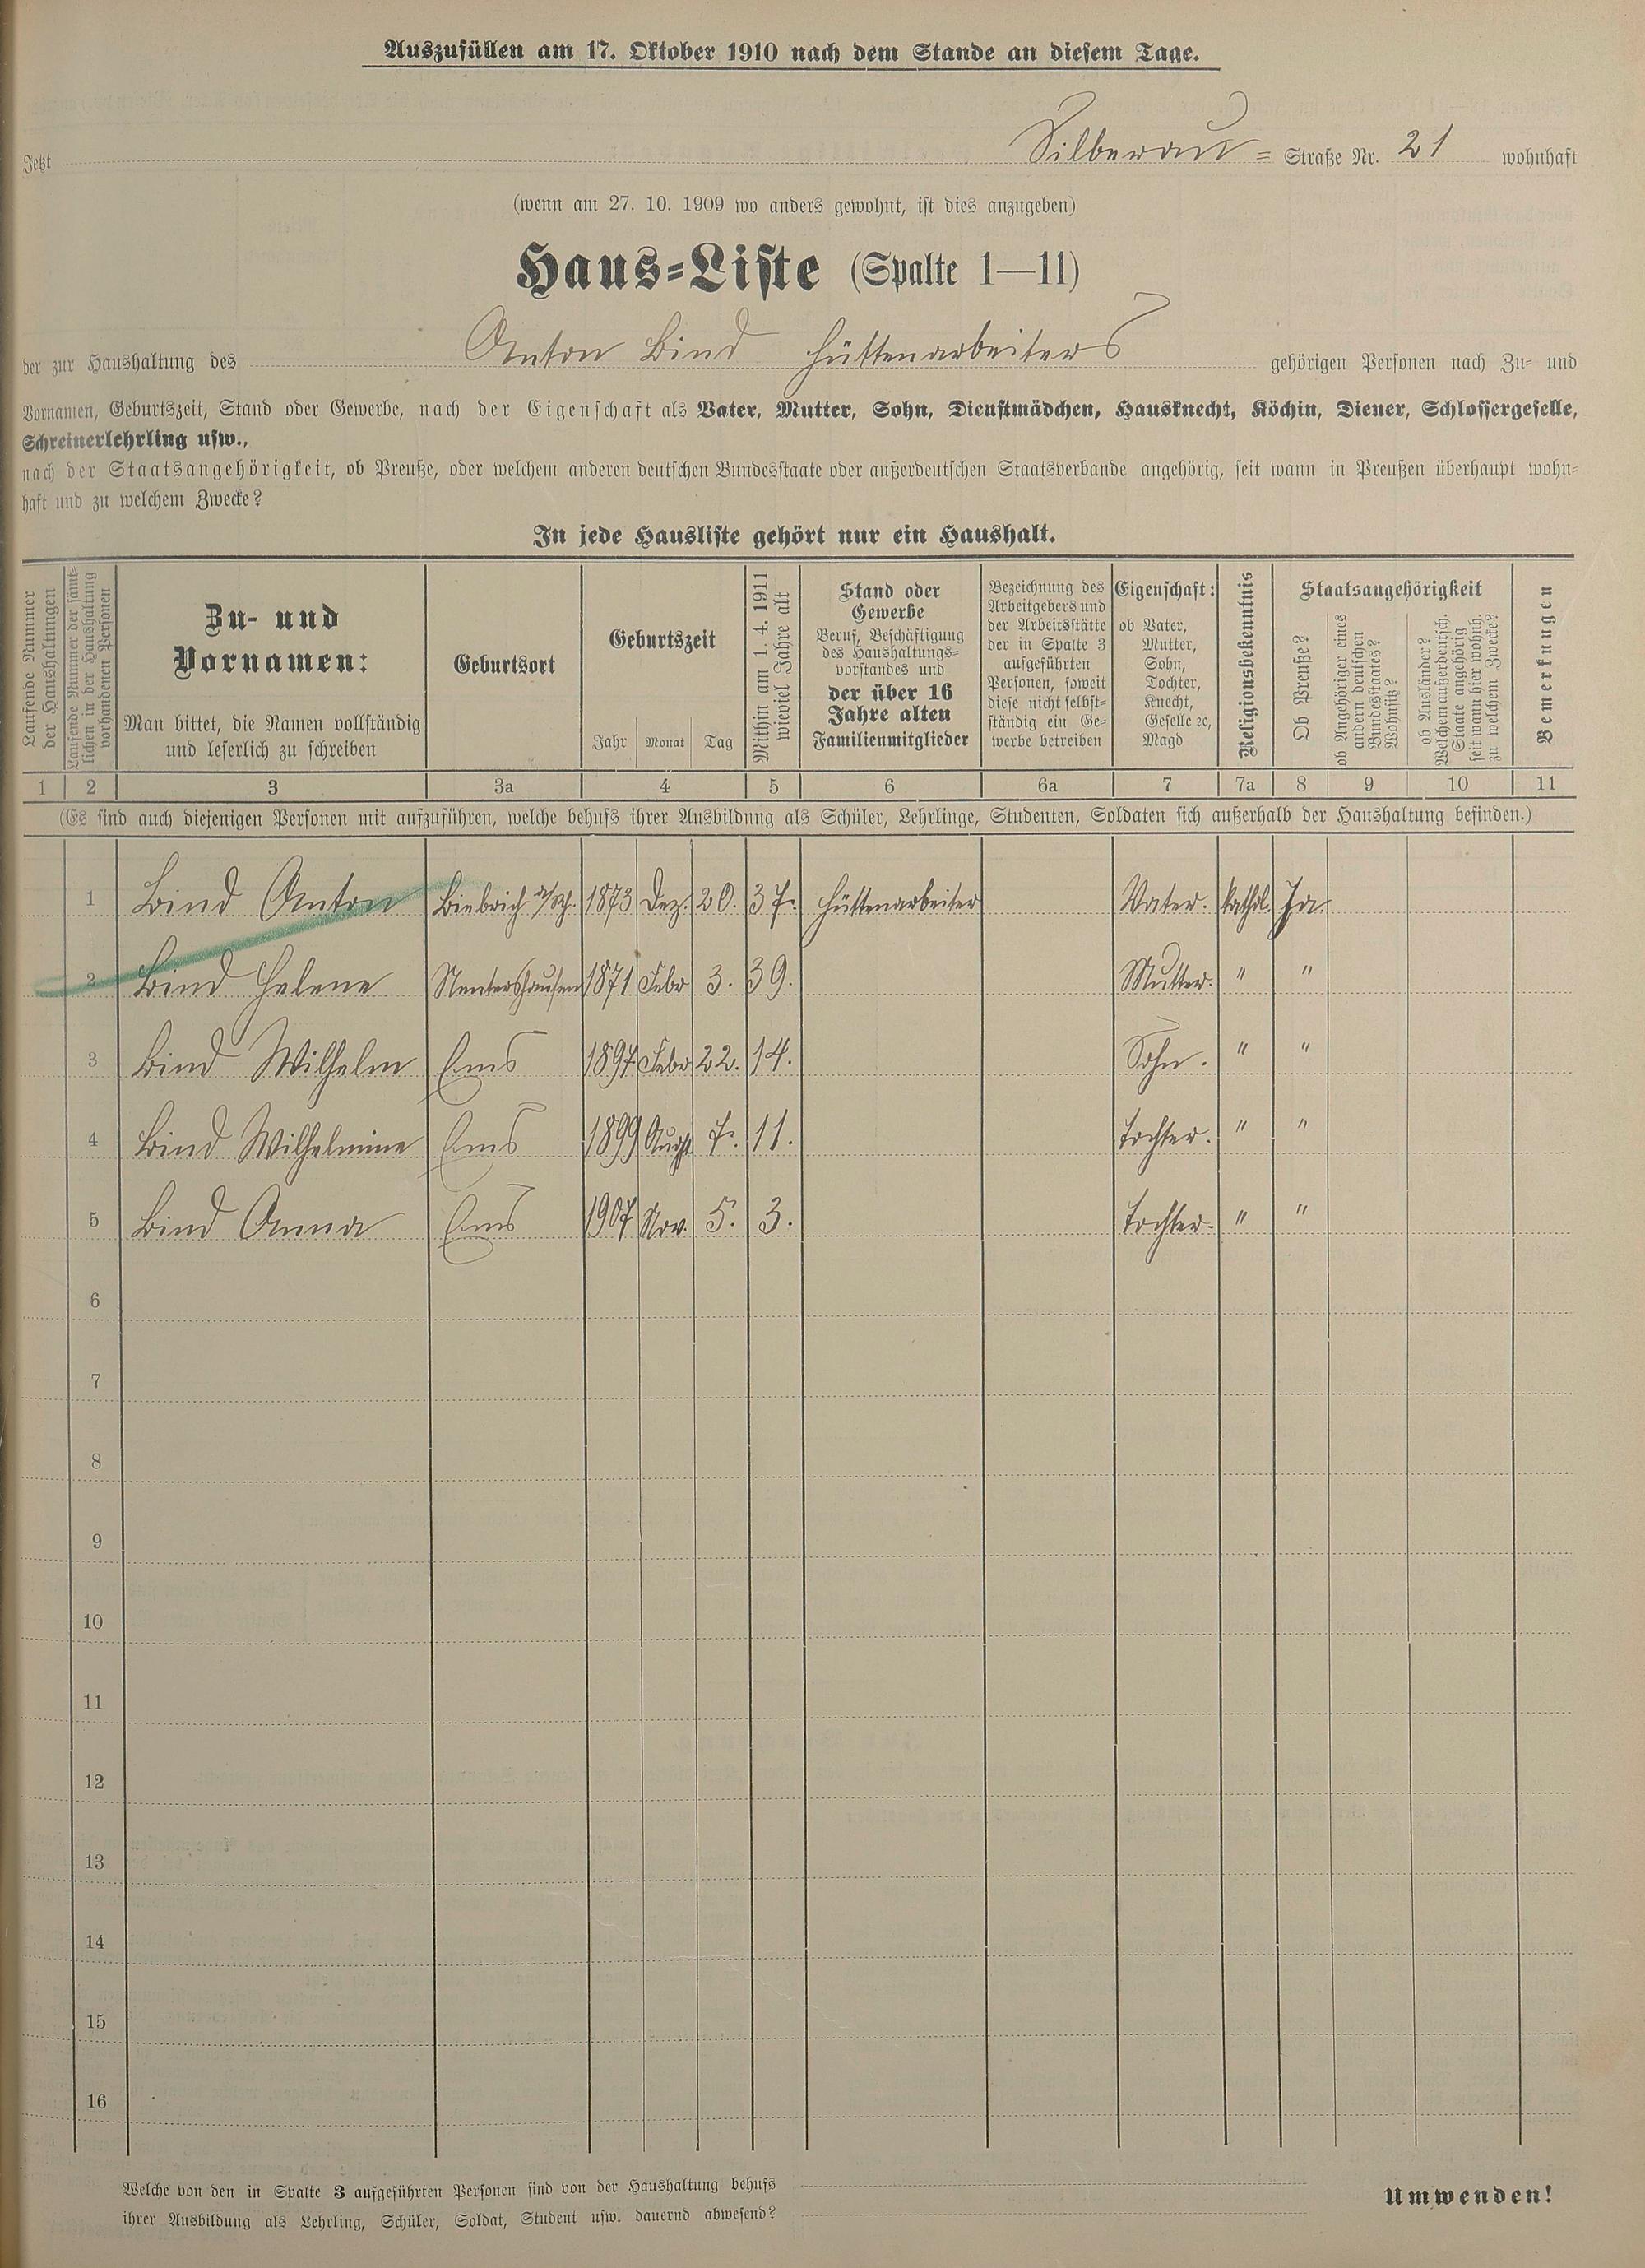 Auszufüllen am 17. Oktober 1910 nach dem Stande an diesem Tage.
Jetzt Silberau = Straße Nr. 21 wohnhaft
(wenn am 27. 10. 1909 wo anders gewohnt, ist dies anzugeben)
Haus=Liste (Spalte 1—11)
der zur Haushaltung des Anton Bind Hüttenarbeiters gehörigen Personen nach Zu- und
Vornamen, Geburtszeit, Stand oder Gewerbe, nach der Eigenschaft als Vater, Mutter, Sohn, Dienstmädchen, Hausknecht, Köchin, Diener, Schlossergeselle,
Schreinerlehrling usw.,
nach der Staatsangehörigkeit, ob Preuße, oder welchem anderen deutschen Bundesstaate oder außerdeutschen Staatsverbande angehörig, seit wann in Preußen überhaupt wohn=
haft und zu welchem Zwecke?
In jede Hausliste gehört nur ein Haushalt.
Laufende Nummer
der Haushaltungen
Laufende Nummer der sämt=
lichen in der Haushaltung
vorhandenen Personen
Zu- und
Vornamen:
Man bittet, die Namen vollständig
und leserlich zu schreiben
Geburtsort
Geburtszeit
Jahr Monat Tag
Mithin am 1. 4. 1911
wieviel Jahre alt
Stand oder
Gewerbe
Beruf, Beschäftigung
des Haushaltungs=
vorstandes und
der über 16
Jahre alten
Familienmitglieder
Bezeichnung des
Arbeitgebers und
der Arbeitsstätte
der in Spalte 3
aufgeführten
Personen, soweit
diese nicht selbst=
ständig ein Ge=
werbe betreiben
Eigenschaft:
ob Vater,
Mutter,
Sohn,
Tochter,
Knecht,
Geselle ꝛc,
Magd
Religionsbekenntnis
Staatsangehörigkeit
Ob Preuße?
ob Angehöriger eines
andern deutschen
Bundesstaates?
Wohnsitz?
ob Ausländer?
Welchem außerdeutsch.
Staate angehörig
seit wann hier wohnh.
zu welchem Zwecke?
Bemerkungen
1 2 3 3a 4 5 6 6a 7 7a 8 9 10 11
(Es sind auch diejenigen Personen mit aufzuführen, welche behufs ihrer Ausbildung als Schüler, Lehrlinge, Studenten, Soldaten sich außerhalb der Haushaltung befinden.)
1 Bind Anton Biebrich a/Rh. 1873 Dez. 20. 37. Hüttenarbeiter Vater. kathol. Ja.
2 Bind Helene Nentershausen 1871 Febr 3. 39. Mutter. " "
3 Bind Wilhelm Ems 1897 Febr 22. 14. Sohn. " "
4 Bind Wilhelmine Ems 1899 Augst 7. 11. Tochter. " "
5 Bind Anna Ems 1907 Nov. 5. 3. Tochter. " "
6
7
8
9
10
11
12
13
14
15
16
Welche von den in Spalte 3 aufgeführten Personen sind von der Haushaltung behufs
ihrer Ausbildung als Lehrling, Schüler, Soldat, Student usw. dauernd abwesend?
Umwenden!